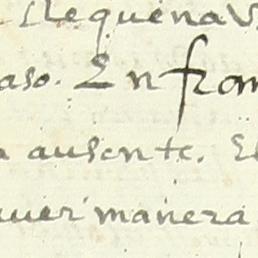 llequéna V
aso. En fron
a ausente. El
uver manera